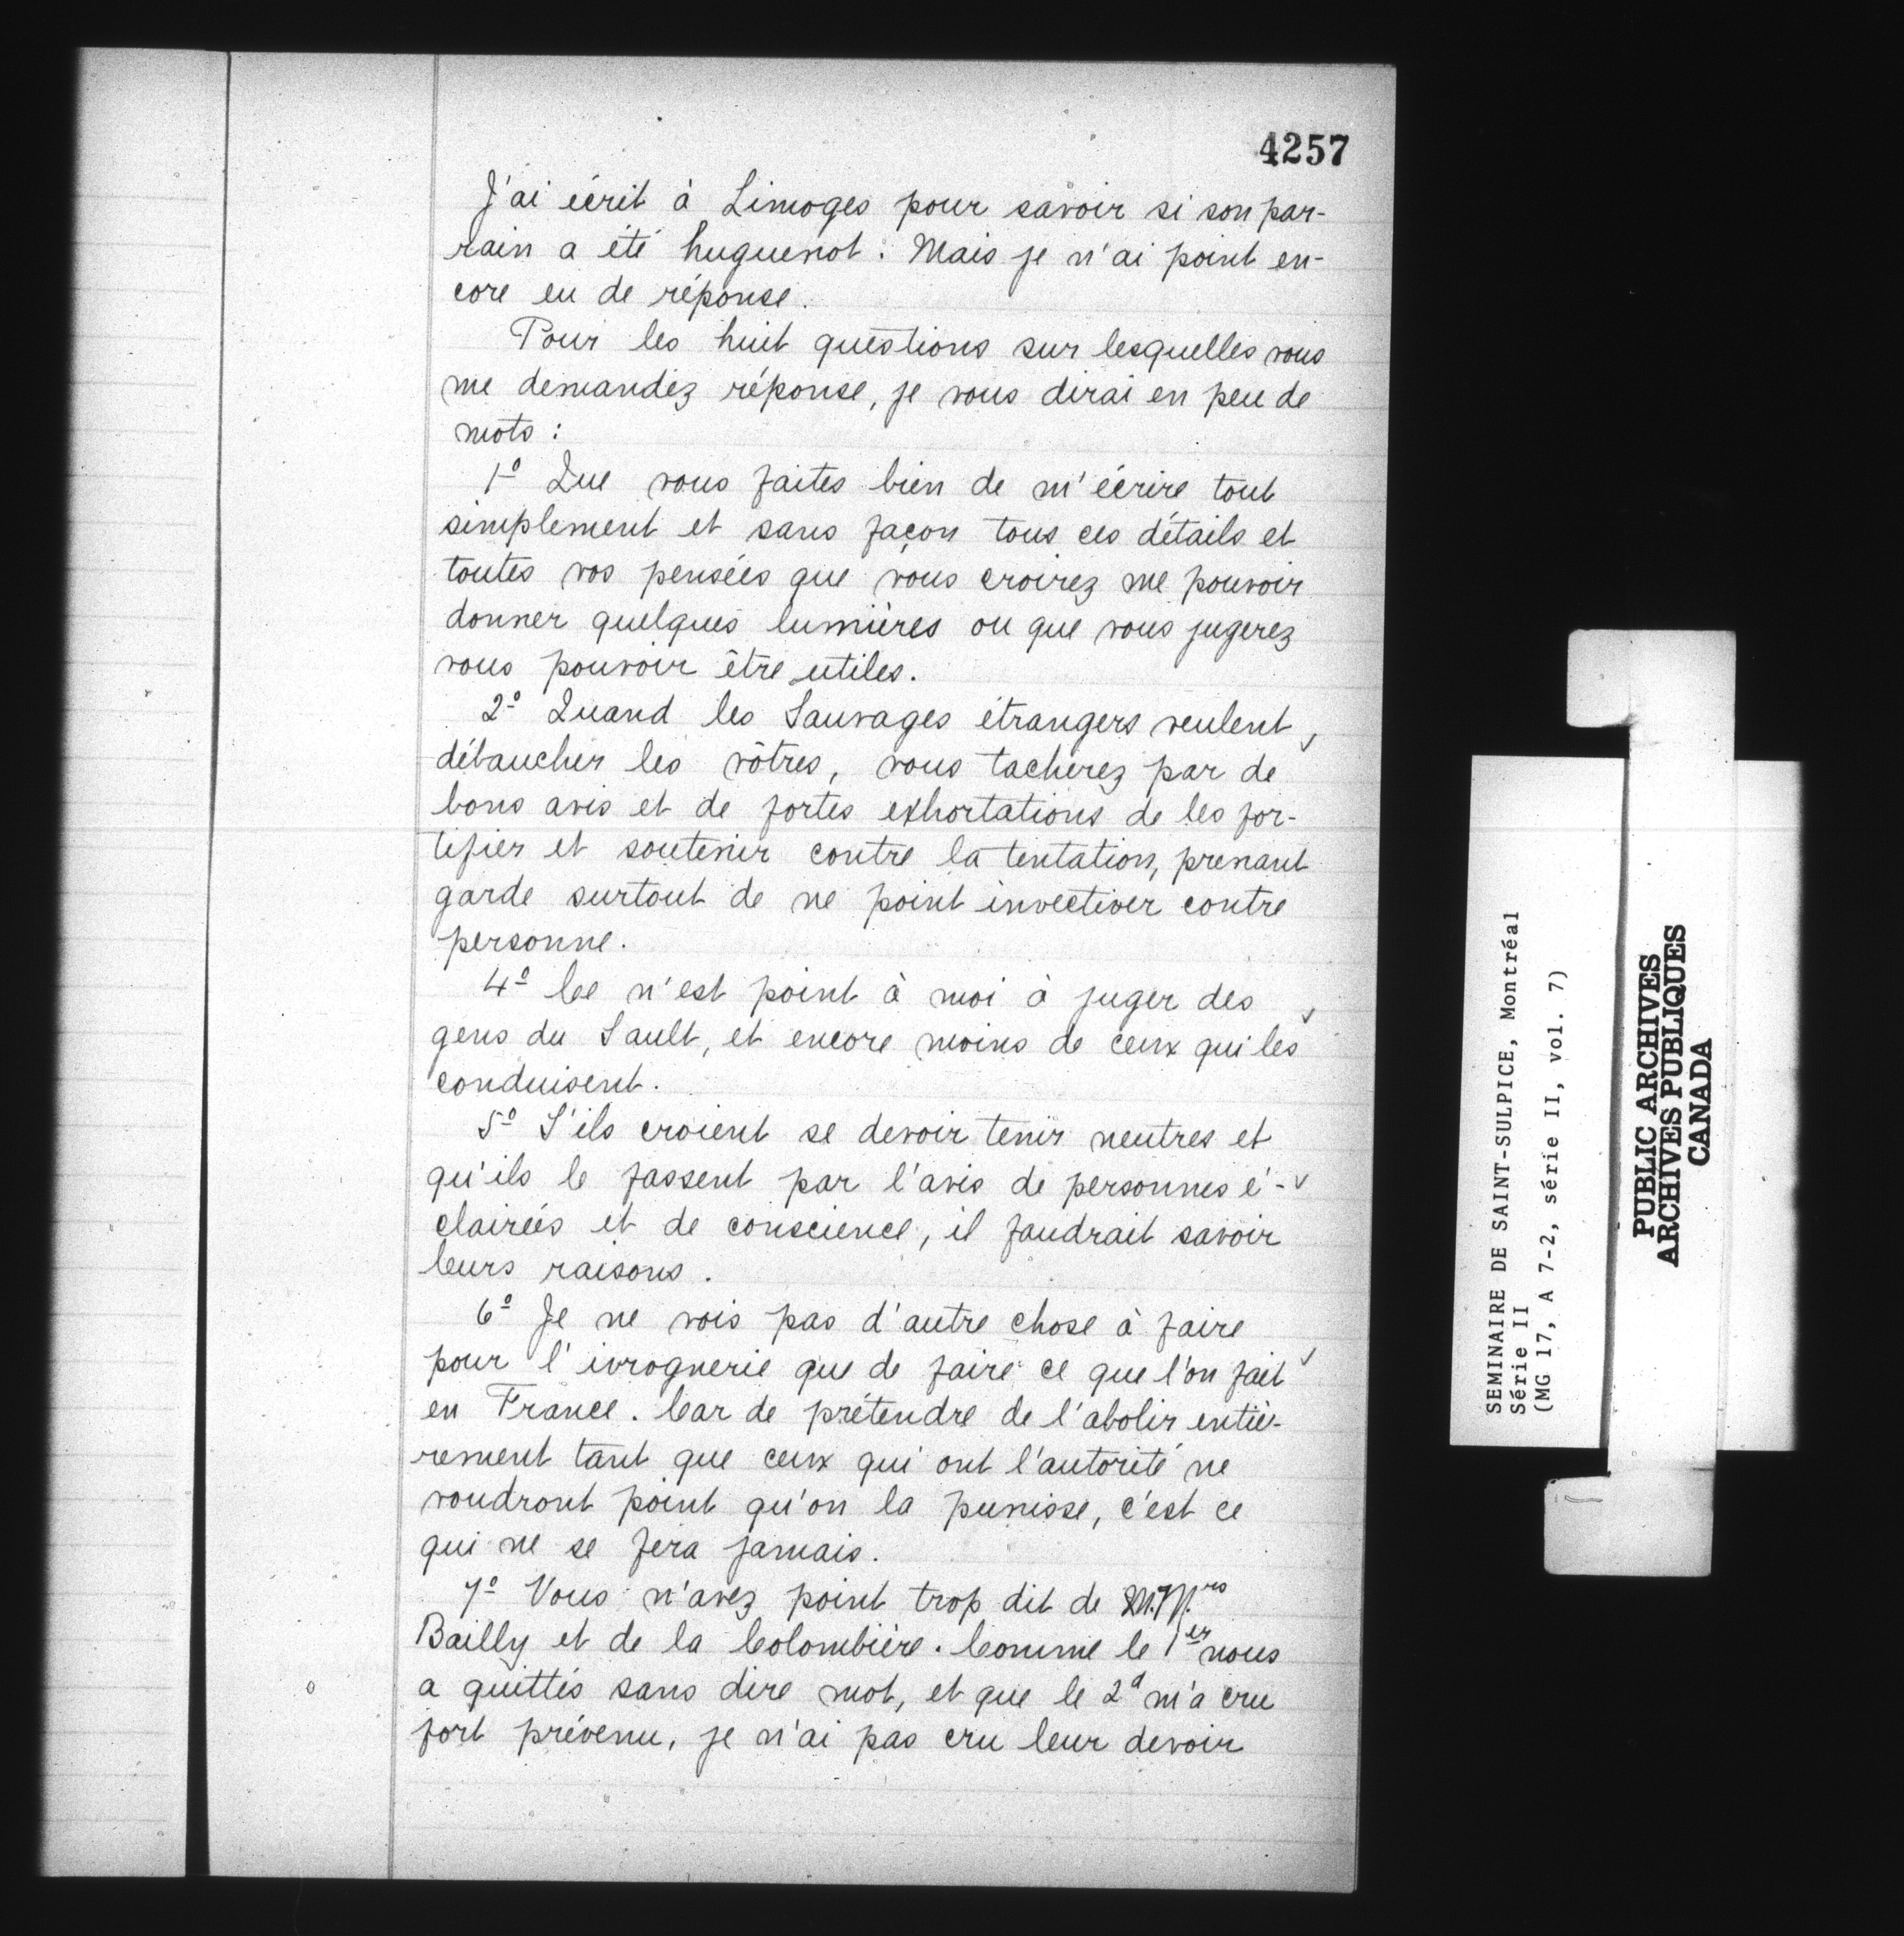 4257
J'ai écrit à Limoges pour savoir si son par-
rain a été huguenot : Mais je n'ai point en-
core eu de réponse.
Pour les huit questions sur lesquelles vous
me demandez réponse, je vous dirai en peu de
mots :
1º Que vous faites bien de m'écrire tout
simplement et sans façon tous ces détails et
toutes vos pensées que vous croirez me pouvoir
donner quelques lumières ou que vous jugerez
vous pouvoir être utiles.
2º Quand les Sauvages étrangers veulent
débaucher les vôtres, vous tacherez par de
bons avis et de fortes exhortations de les for-
tifier et soutenir contre la tentation, prenant
garde surtout de ne point invectiver contre
personne.
4º Ce n'est point à moi à juger des
gens du Sault, et encore moins de ceux qui les
conduisent.
5º S'ils croient se devoir tenir neutres et
qu'ils le fassent par l'avis de personnes é-
clairées et de conscience, il faudrait savoir
leurs raisons.
6º Je ne vois pas d'autre chose à faire
pour l'ivrognerie que de faire ce que l'on fait
en France. Car de prétendre de l'abolir entiè-
rement tant que ceux qui ont l'autorité ne
voudront point qu'on la punisse, c'est ce
qui ne se fera jamais.
7º Vous n'avez point trop dit de M.M.rs
Bailly et de la Colombière. Comme le 1er nous
a quittés sans dire mot, et que le 2d m'a cru
fort prévenu, je n'ai pas cru leur devoir
SEMINAIRE DE SAINT-SULPICE, Montréal
Série II
(MG 17, A 7-2, série II, vol. 7)
PUBLIC ARCHIVES
ARCHIVES PUBLIQUES
CANADA